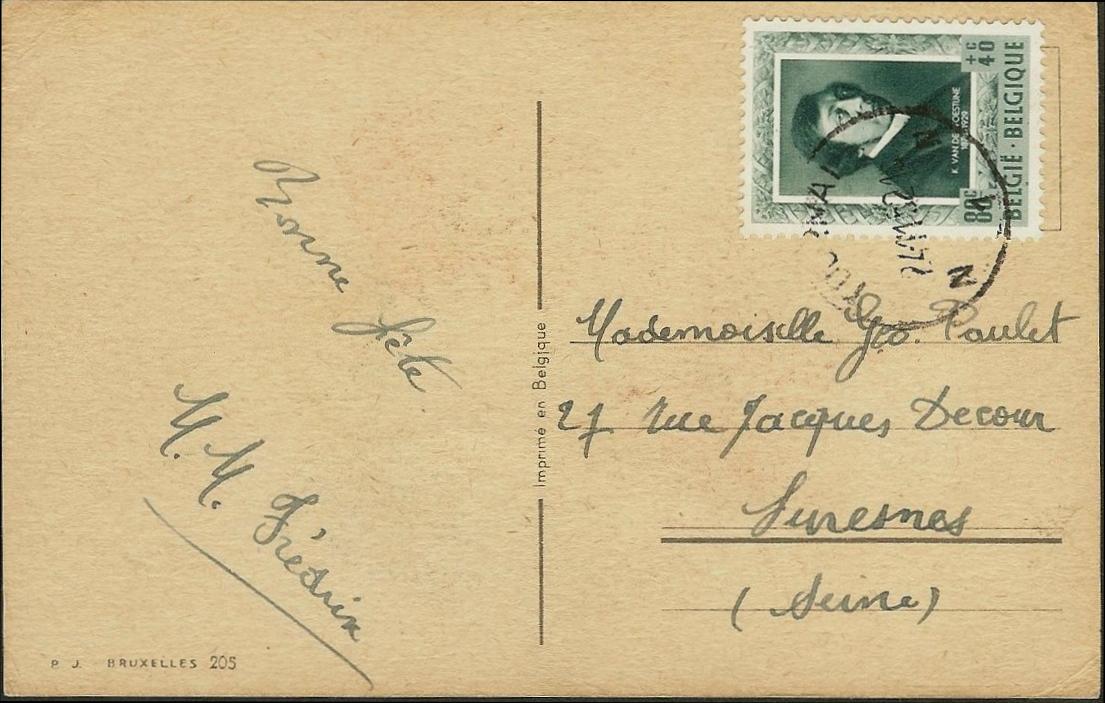 Bonne
fête
M. M. Frédrix
P. J. BRUXELLES 205
Imprimé en Belgique
BELGIË · BELGIQUE
80 C
+ C
40
K. VAN DE WOESTIJNE
Mademoiselle Geo. Paulet
27 rue Jacques Decour
Suresnes
(Seine)